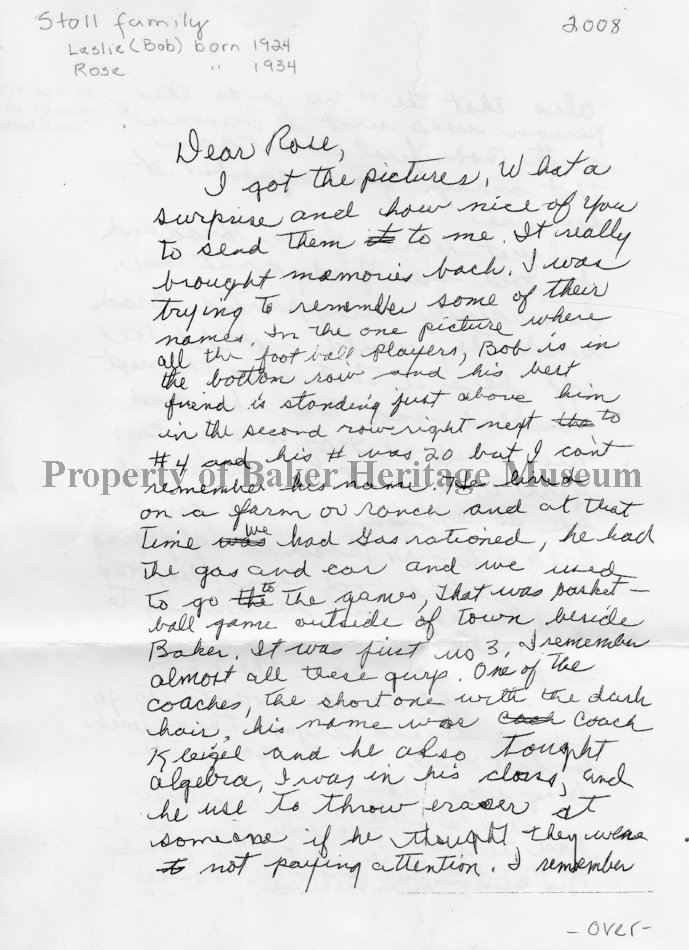 Stoll family
2008
Leslie (Bob) born 1924
Rose " 1934
Dear Rose,
I got the pictures, What a
surprise and how nice of you
to send them it to me. It really
brought memories back. I was
trying to remember some of their
names. In the one picture where
all the football players, Bob is in
the bottom row and his best
friend is standing just above him
in the second row right next the to
#4 and his # was 20 but I can't
Property of Baker Heritage Museum
remember his name. He lived
on a farm or ranch and at that
time was we had gas rationed, he had
the gas and car and we used
to go the to the games, that was basket-
ball game outside of town beside
Baker. It was first no 3. I remember
almost all these guys. One of the
coaches, the short one with the dark
hair, his name was coach
Kleigel and he also tought
algebra, I was in his class, and
he use to throw eraser at
someone if he thought they were
to not paying attention. I remember
-over-